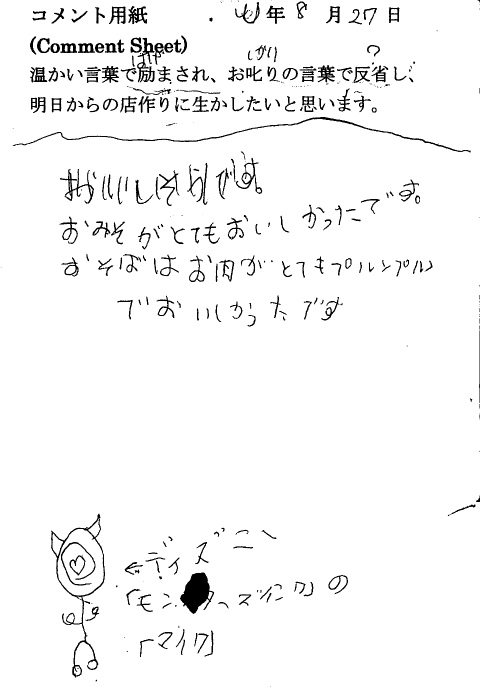 コメント用紙 年 8 月 27 日
(Comment Sheet)
はげ しかり ?
温かい言葉で励まされ、お叱りの言葉で反省し、
明日からの店作りに生かしたいと思います。
おいしそうです。
おみそがとてもおいしかったです。
おそばはお肉がとてもプルンプルン
でおいしかったです
←ディズニー
「モンスターズインク」の
「マイク」